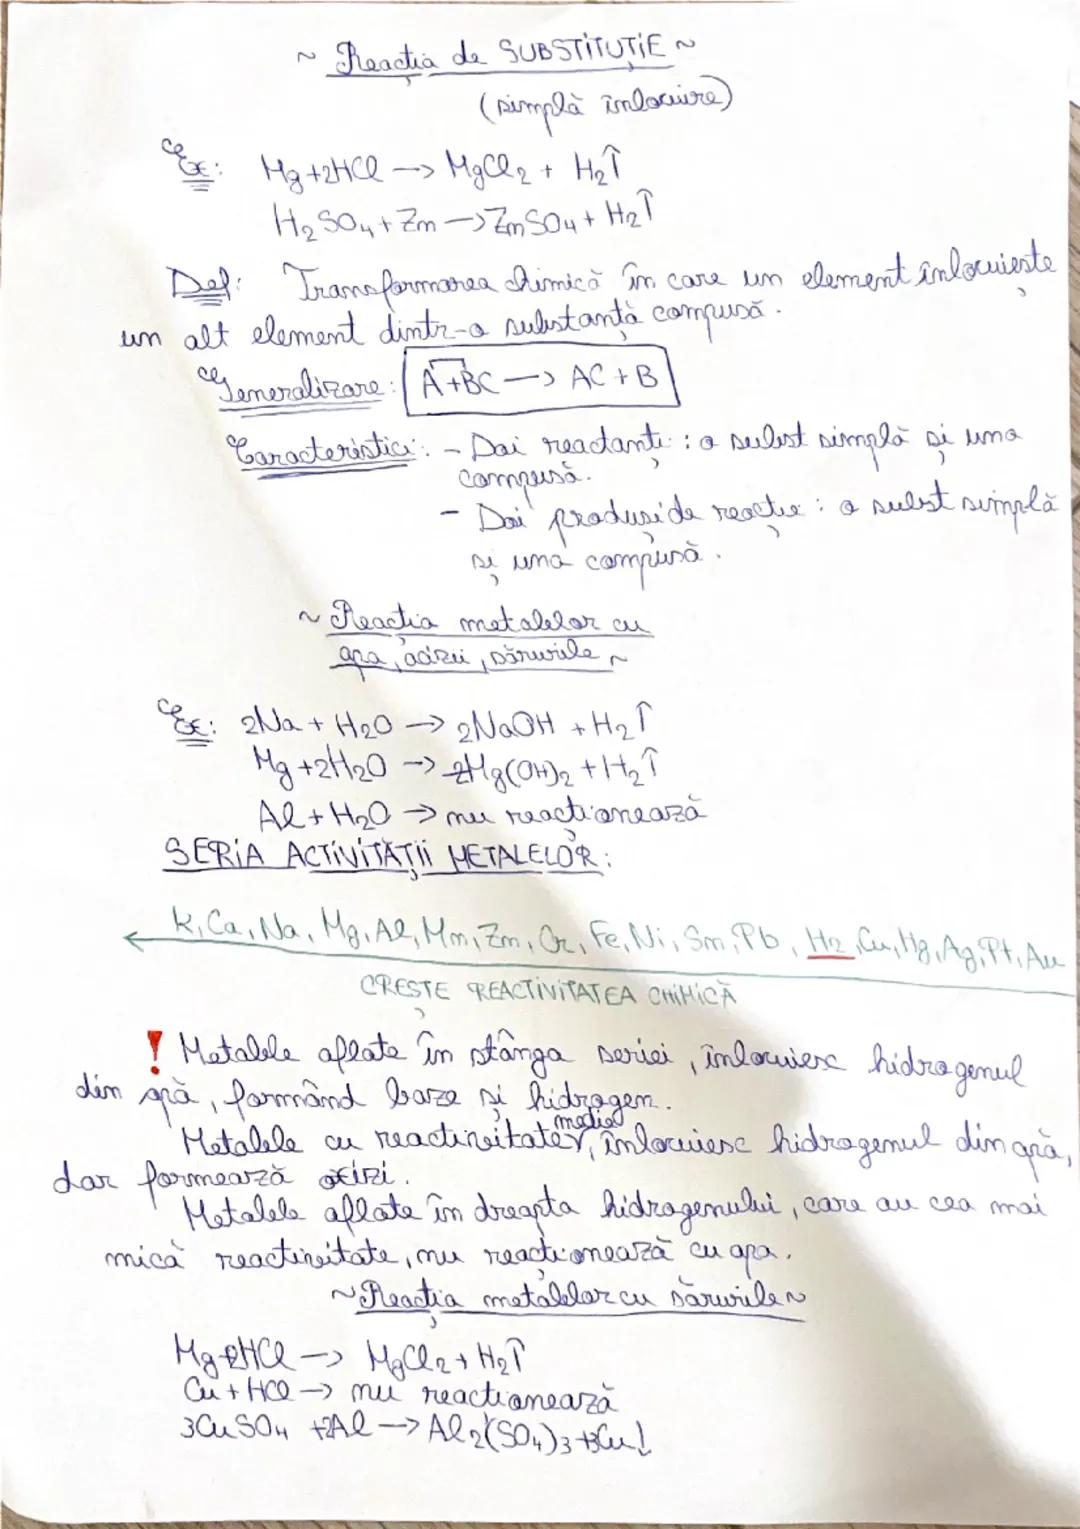 ~ Reacția de SUBSTITUȚIE ~
(simplă înlocuire)
Ex: Mg+2HCl → MgCl₂ + H₂↑
H₂SO₄ + Zn → ZnSO₄ + H₂↑
Def: Transformarea chimică în care un element înlocuiește
un alt element dintr-o substanță compusă.
Generalizare: A+BC → AC + B
Caracteristici: - Doi reactanți: o subst simplă și una
compusă.
- Doi produși de reacție: o subst simplă
și una compusă.
~ Reacția metalelor cu
apa, acizii, sărurile ~
Ex: 2Na + H₂O → 2NaOH + H₂↑
Mg + 2H₂O → Mg(OH)₂ + H₂↑
Al + H₂O → nu reacționează
SERIA ACTIVITĂȚII METALELOR:
K, Ca, Na, Mg, Al, Mn, Zn, Cr, Fe, Ni, Sn, Pb, H₂, Cu, Hg, Ag, Pt, Au
CREȘTE REACTIVITATEA CHIMICĂ
! Metalele aflate în stânga seriei, înlocuiesc hidrogenul
din apă, formând baze și hidrogen.
Metalele cu reactivitate medie, înlocuiesc hidrogenul din apă,
dar formează oxizi.
Metalele aflate în dreapta hidrogenului, care au cea mai
mică reactivitate, nu reacționează cu apa.
~ Reacția metalelor cu sărurile ~
Mg+2HCl → MgCl₂ + H₂↑
Cu + HCl → nu reacționează
3CuSO₄ + 2Al → Al₂(SO₄)₃ + 3Cu↓